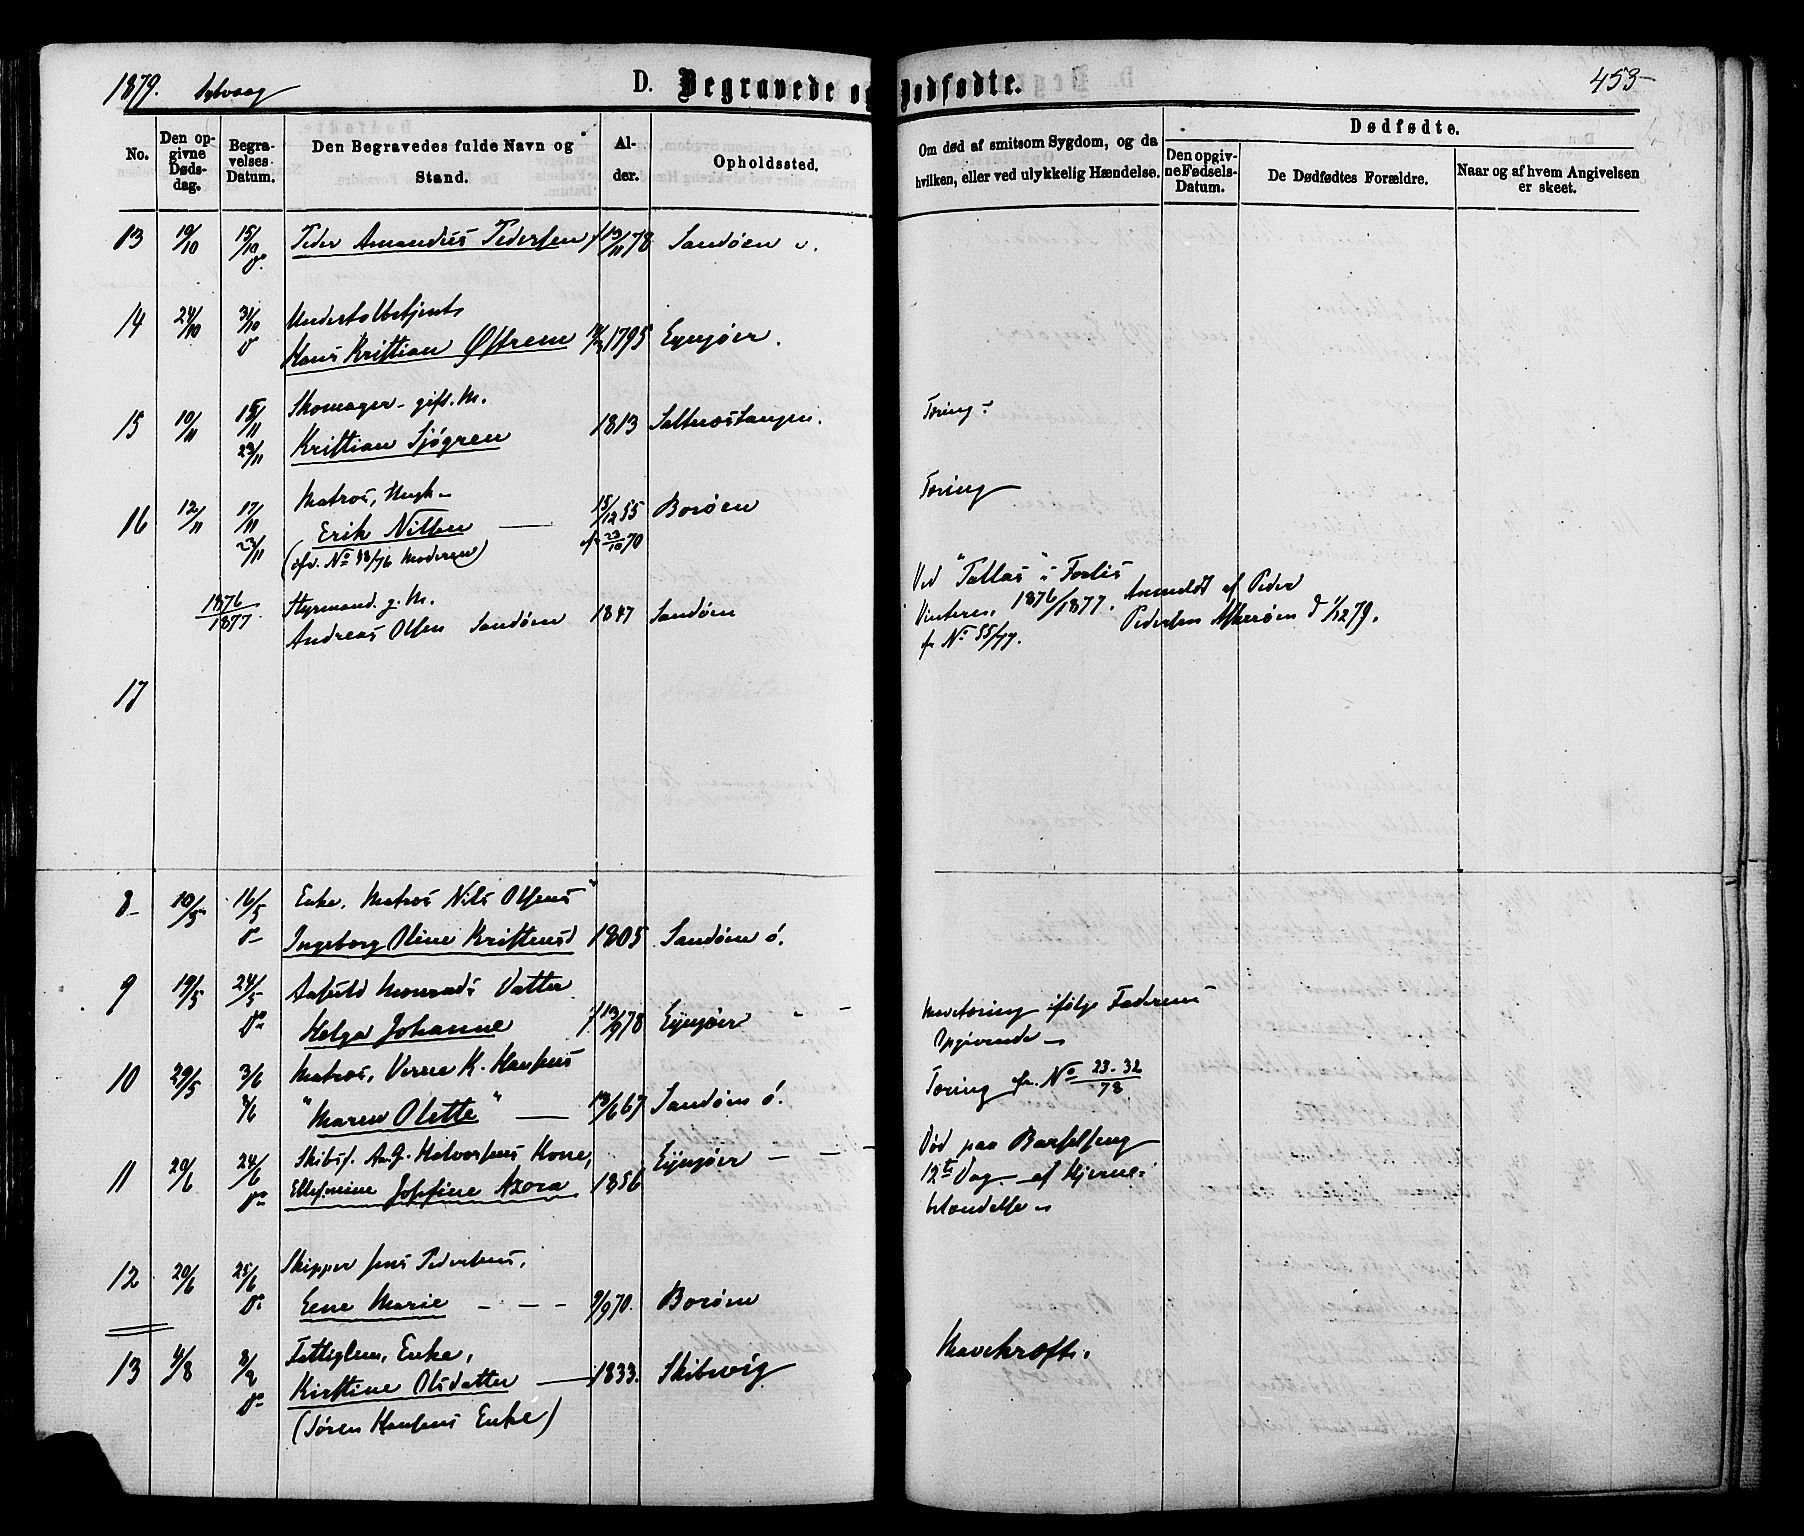 1879.
D. Begravede og Dødfødte.
453
No.
Den opgivne Dødsdag.
Begravelses Datum.
Den Begravedes fulde Navn og Stand.
Alder.
Opholdssted.
Om død af smitsom Sygdom, og da hvilken, eller ved ulykkelig Hændelse.
Dødfødte.
Den opgivne Fødsels-Datum.
De Dødfødtes Forældre.
Naar og af hvem Angivelsen er skeet.
13 19/10 15/10 Peder Amandus Pedersen f 13/11 78 Sandøen v.
14 24/10 31/10 Undertolbetjent
Hans Kristian Østrem 1795 Lyngør.
15 10/11 15/11 Skomager gift M.
23/11 Kristian Sjøgren 1813 Tæring
16 12/11 17/11 Matros, Ungk.
23/11 Erik Nilsen 15/12 55 Borøen Tæring
(cfr. No 48/76 Moderen) 23/10 70
1876/1877 Styrmand g. M.
Andreas Olsen Sandøen 1847 Sandøen
Ved "Tallas" 's Forlis
Vinteren 1876/1877. Anmeldt af Peder
Pedersen Askerøen d 1/12 79.
cfr No 55/77.
17
8 10/5 16/5 Enke, Matros Nils Olsens
Ingeborg Oline Kristensd 1805 Sandøen ø.
9 19/5 24/5 Monrads Datter
Helga Johanne f. 13/9 78 Lyngør
Mavetæring ifølge Faderens
Opgivende
10 29/5 3/6 Matros, Verne K. Hansens
"Maren Olette" 13/6 67 Sandøen ø.
Tæring cfr. No 23-32/78
11 20/6 24/6 Skibsf. A. G. Halvorsens Kone,
Josefine Azora 1856 Lyngør
Død paa Barselseng
12te Dag af Hjerne-
betændelse
12 20/6 25/6 Skipper Jens Pedersens,
Lene Marie 9/9 70. Borøen
13 4/8 8/2 Fattiglem, Enke,
Kirstine Olsdatter 1833. Skibvig
Mavekræft.
(Søren Hansens Enke)